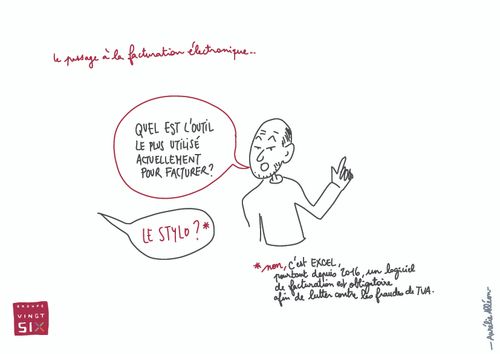 Le passage à la facturation électronique...
QUEL EST L'OUTIL
LE PLUS UTILISÉ
ACTUELLEMENT
POUR FACTURER?
LE STYLO ? *
* non, C'est EXCEL,
pourtant depuis 2016, un logiciel
de facturation est obligatoire
afin de lutter contre les fraudes de TVA.
GROUPE
VINGT
SIX